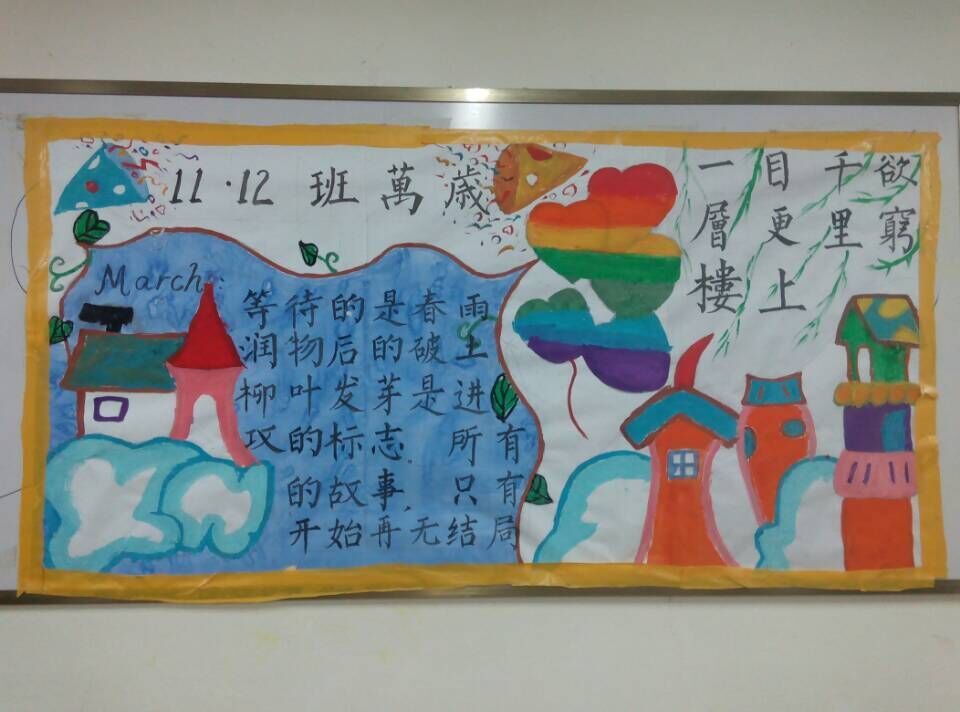 11·12 班萬歳
March
等待的是春雨
润物后的破土
柳叶发芽是进
攻的标志.所有
的故事,只有
开始再无结局
欲窮
千里
目更上
一層樓